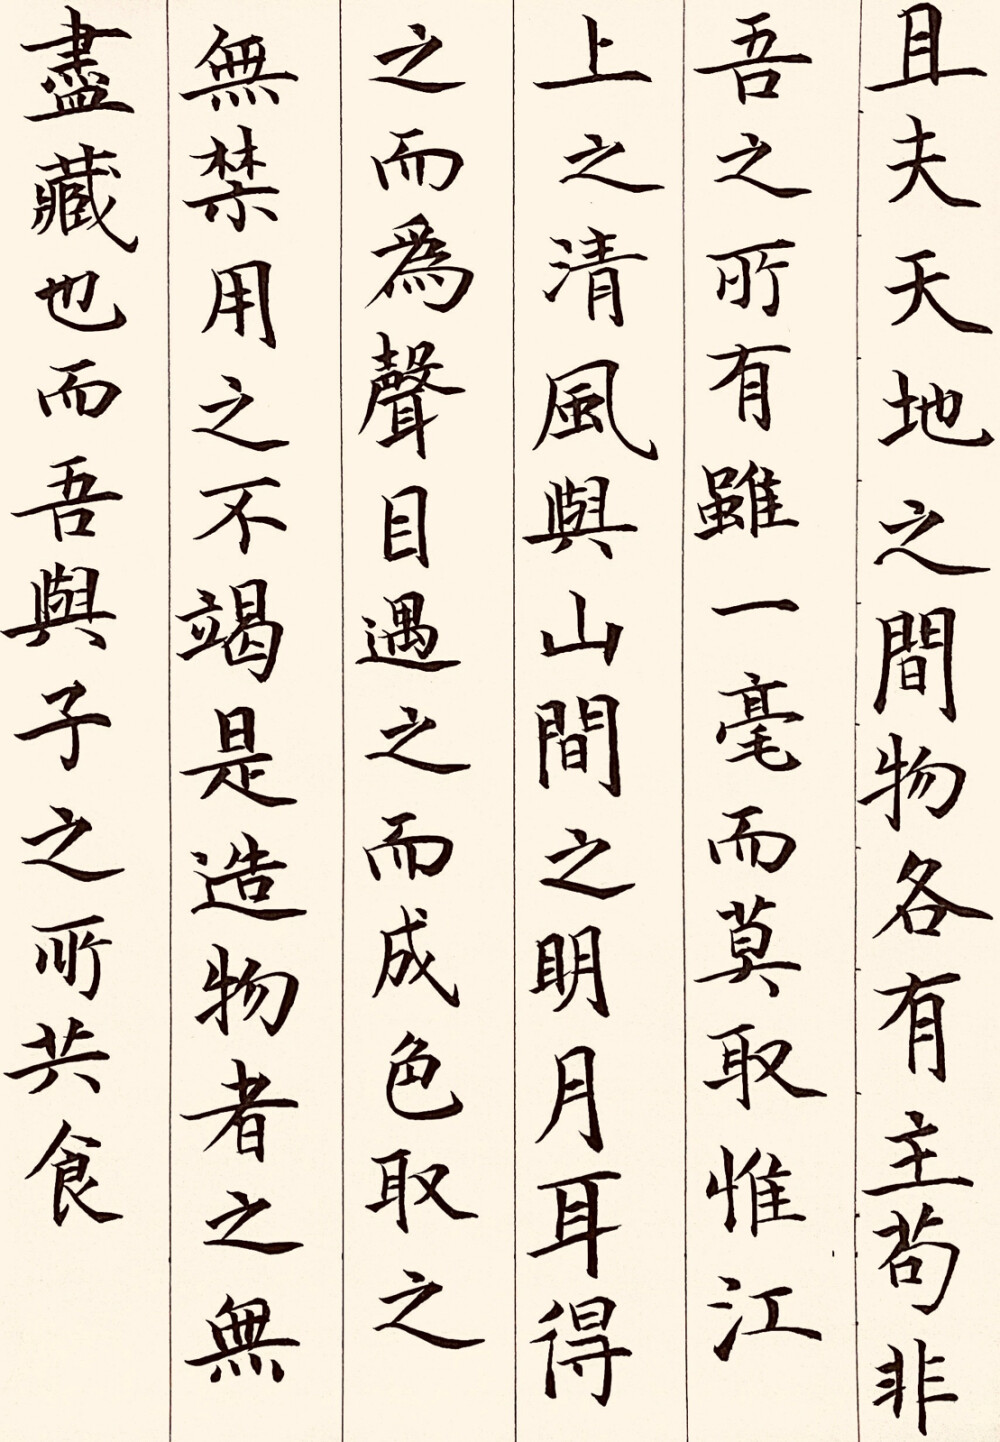 且夫天地之間物各有主苟非
吾之所有雖一毫而莫取惟江
上之清風與山間之明月耳得
之而為聲目遇之而成色取之
無禁用之不竭是造物者之無
盡藏也而吾與子之所共食